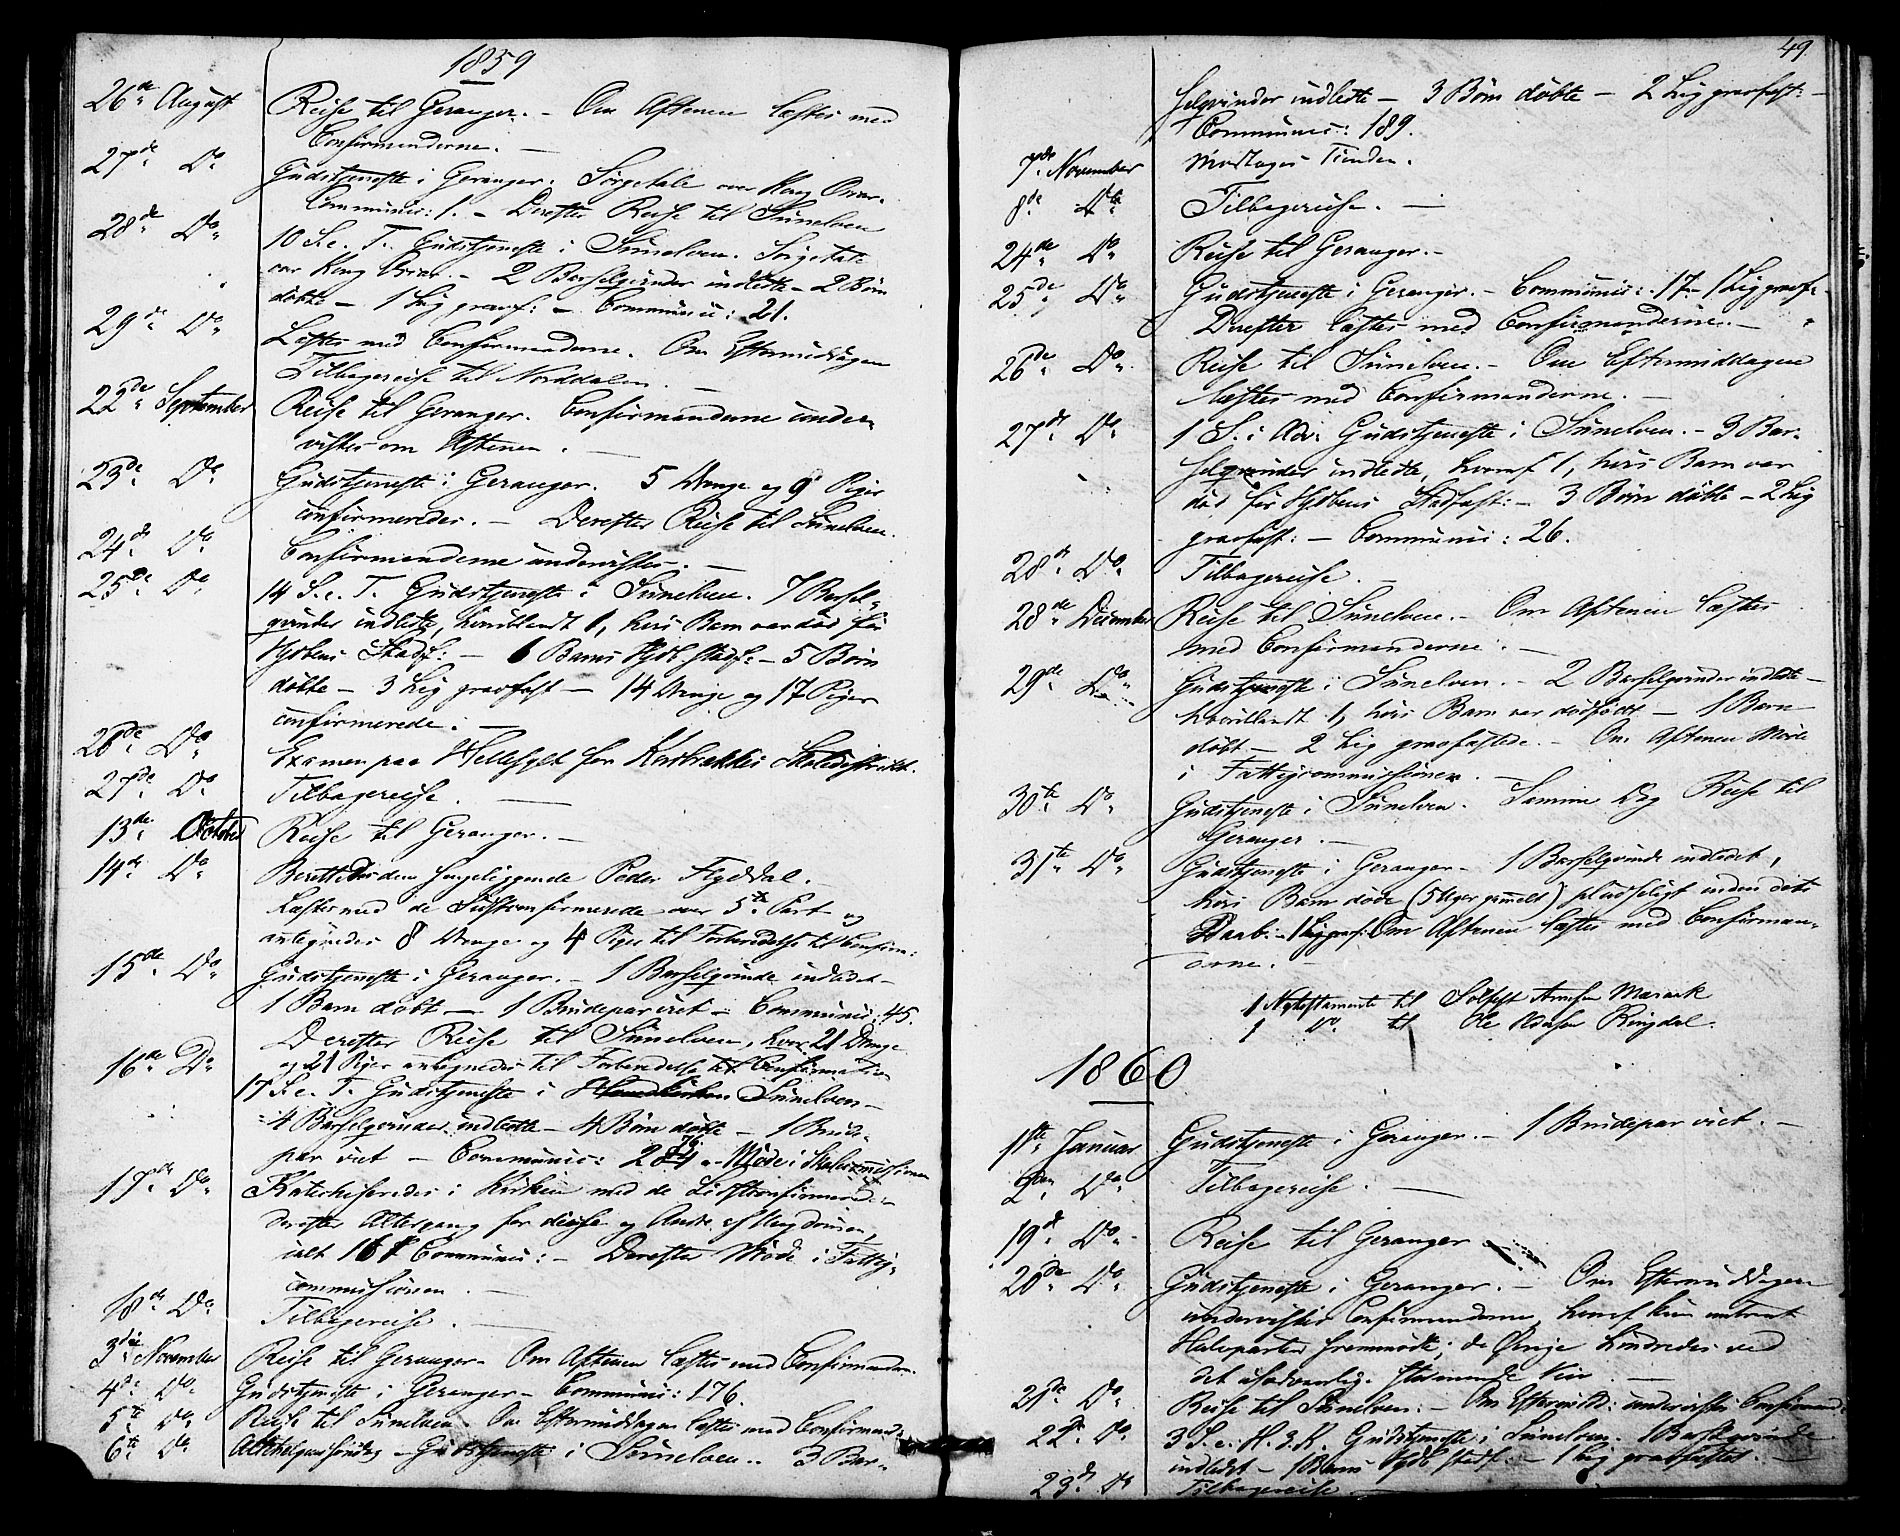 1859
26de August Reise til Geranger. – Om Aftenen læstes med
Confirmanderne. –
27de Do Gudstjeneste i Geranger. Sørgetale over Kong Oscar.
Communic: 1. – Derefter Reise til Sunelven
28de Do 10 S. e. T. Gudstjeneste i Sunelven. Sørgetale
over Kong Oscar. – 2 Barselqvinder indledte – 2 Børn
døbte – 1 Lig gravf: – Communic: 21.
29de Do Læstes med Confirmanderne. Om Eftermiddagen
Tilbagereise til Norddalen. –
22de September Reise til Geranger. Confirmanderne under-
vistes om Aftenen. –
23de Do Gudstjeneste i Geranger. 5 Drenge og 9 Piger
confirmeredes. – Derefter Reise til Sunelven.
24de Do Confirmanderne undervistes. –
25de Do 14 S. e. T. Gudstjeneste i Sunelven. 7 Barsel-
qvinder indledte, hvoriblandt 1, hvis Barn var død før
Hjdbens Stadf: – 6 Barns Hjdb. stadf: – 5 Børn
døbte – 3 Lig gravfast – 14 Drenge og 17 Piger
confirmerede. –
26de Do Examen paa Hellesylt for Skoledistrikt.
27de Do Tilbagereise. –
13de October Reise til Geranger. –
14de Do Berettedes den sengeliggende Peder Flydal. –
Læstes med de Sidstconfirmerede over 5te Part og
antegnedes 8 Drenge og 4 Piger til Forberedelse til Confirm:
15de Do Gudstjeneste i Geranger. – 1 Barselqvinde indledt –
1 Barn døbt – 1 Brudepar viet – Communic: 45.
Derefter Reise til Sunelven, hvor 21 Drenge
og 21 Piger antegnedes til Forberedelse til Confirmation
16de Do 17 S. e. T. Gudstjeneste i Sunelven –
4 Barselqvinder indledte – 4 Børn døbte – 1 Brude-
par viet – Communic: – Møde i Skolecommissionen
17de Do Katechiseredes i Kirken med de Sidstconfirmerede
derefter Altergang for disse og Andre af Ungdommen,
ialt Communic: – Derefter Møde i Fattig-
commissionen. –
18de Do Tilbagereise. –
3die November Reise til Geranger – Om Aftenen læstes med Confirmander.
4de Do Gudstjeneste i Geranger – Communic: 176.
5te Do Reise til Sunelven. Om Eftermiddagen læstes med Confirmand:
6te Do Allehelgenssøndag – Gudstjeneste i Sunelven. 3 Bar-
49
selqvinder indledte – 3 Børn døbte – 2 Lig gravfast: –
Communic: 189.
7de November Modtages Tienden.
8de Do Tilbagereise. –
24de Do Reise til Geranger. –
25de Do Gudstjeneste i Geranger. – Communic: 17 – 1 Lig gravf:
Derefter læstes med Confirmanderne. –
26de Do Reise til Sunelven. – Om Eftermiddagen
læstes med Confirmanderne. –
27de Do 1 S. i Adv: Gudstjeneste i Sunelven. – 3 Bar-
selqvinder indledte, hvoraf 1, hvis Barn var
død før Hjdbens Stadfast: – 3 Børn døbte – 2 Lig
gravfast: – Communic: 26.
28de Do Tilbagereise. –
28de December Reise til Sunelven. – Om Aftenen læstes
med Confirmanderne. –
29de Do Gudstjeneste i Sunelven. – 2 Barselqvinder indledte –
hvoriblandt 1, hvis Barn var dødfødt – 1 Barn
døbt – 2 Lig gravfæstede. – Om Aftenen Møde
i Fattigcommissionen. –
30te Do Gudstjeneste i Sunelven. Samme Dag Reise til
Geranger. –
31te Do Gudstjeneste i Geranger – 1 Barselqvinde indledet,
hvis Barn døde (5 Uger gammelt) pludseligt inden dets
Daab: – 1 Lig gravf: Om Aftenen læstes med Confirman-
derne. –
1 Nytestamente til Sølfest Arnesen Maraak
1 Do til Ole Adnsen Ringdal.
1860
1ste Januar Gudstjeneste i Geranger. – 1 Brudepar viet. –
2den Do Tilbagereise. –
19de Do Reise til Geranger –
20de Do Gudstjeneste i Geranger. – Om Eftermiddagen
undervistes Confirmanderne, hvoraf kun omtrent
Halvparten fremmødte; de Øvrige hindredes ved
det usædvanlig stormende Veir. –
21de Do Reise til Sunelven. – Om Eftermidd: undervistes Confirmand:
22de Do 3 S. e. H. 3 K. Gudstjeneste i Sunelven. 1 Barselqvinde
indledt – 1 Barns Hjdb. stadf. – 1 Lig gravfæstet. –
23de Do Tilbagereise. –